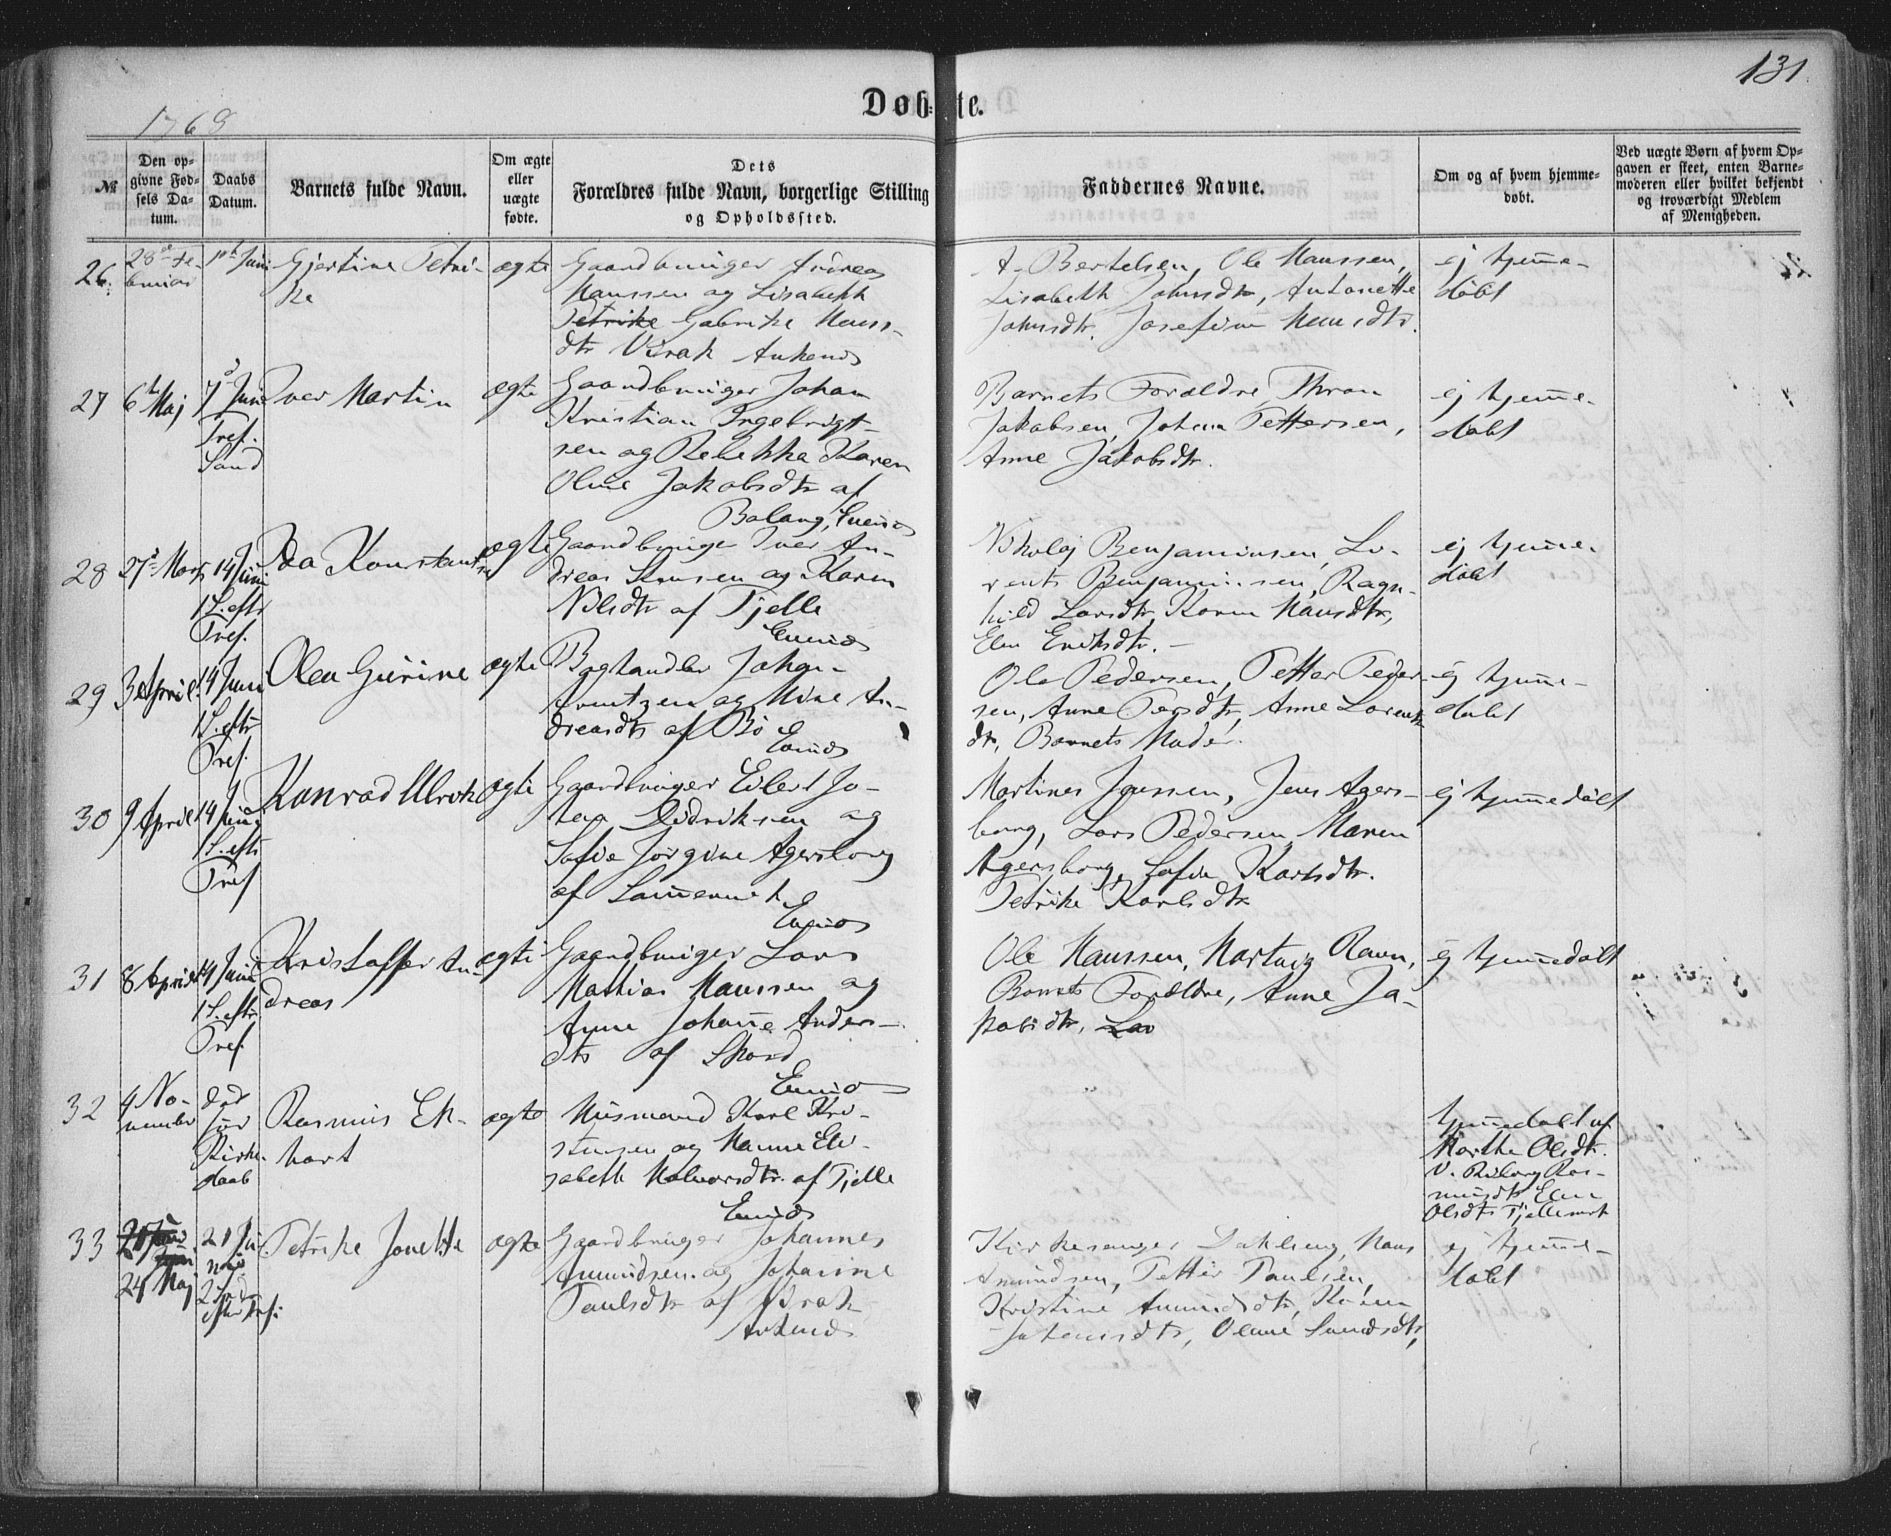 131.
Døbte.
1768
№
Den op-
givne Fød-
sels Da-
tum.
Daabs
Datum.
Barnets fulde Navn.
Om ægte
eller
uægte
fødte.
Dets
Forældres fulde Navn, borgerlige Stilling
og Opholdssted.
Faddernes Navne.
Om og af hvem hjemme-
døbt.
Ved uægte Børn af hvem Op-
gaven er skeet, enten Barne-
moderen eller hvilket bekjendt
og troværdigt Medlem
af Menigheden.
26.
28de Fe-
bruar
1ste Juni
Gjertine Petri-
ke
ægte
Gaardbruger Andreas
Hanssen og Lisabeth
Petrike Gabrike Hans-
dtr Virak Ankenes
A. Bertelsen, Ole Hanssen,
Lisabeth Johnsdtr, Antonette
Johnsdtr. Josefine Hansdtr.
ej hjemme-
døbt
27
6te Maj
7de Juni
Tref.
Sønd
Iver Martin
ægte
Gaardbruger Johan
Kristian Ingebrigt-
sen og Rebekka Karen
Oline Jakobsdtr af
Balang, Evenes
Barnets Forældre, Thron
Jakobsen, Johan Pettersen,
Anne Jakobsdtr.
ej hjemme-
døbt
28
27de Marts
14 Juni
1 S. eftr
Tref.
Ida Konstantse
ægte
Gaardbruger Iver An-
dreas Hansen og Karen
Nilsdtr af Fjelle
Evenes
Nikolaj Benjaminsen, Lo-
rents Benjaminsen, Ragn-
hild Larsdtr, Karen Hansdtr,
Elen Eriksdtr. -
ej hjemme-
døbt
29
3 April
14 Juni
1 S. eftr
Tref.
Olea Gurine
ægte
Johan
Arentzen og Mine An-
dreasdtr af Bø
Evenes
Ole Pedersen, Petter Peder-
sen, Anne Persdtr, Anne Lorents-
dtr, Barnets Moder.
ej hjemme-
døbt
30
9 April
14 Juni
1 S. eftr
Tref
Konrad Ulrik
ægte
Gaardbruger Eilert Jo-
han Didriksen og
Sofie Jørgine Agersborg
af
Evenes
Martines Jenssen, Jens Agers-
borg, Lars Pedersen, Maren
Agersborg, Sofie Karlsdtr.
Petrike Karlsdtr
ej hjemmedøbt
31
8 April
14 Juni
1 S. eftr
Tref.
Kristoffer An-
dreas
ægte
Gaardbruger Lars
Mathias Hanssen og
Anne Johanne Anders-
dtr af
Evenes
Ole Hanssen, Hartvig Ravn,
Barnets Forældre, Anne Ja-
kobsdtr, Lar
ej hjemmedøbt
32
4 No-
vember
død
før
Kirke-
daab
Rasmus Ek-
hart
ægte
Husmand Karl Kri-
stensen og Hanna Eli-
sabeth Halvorsdtr. af Fjelle
Evenes
hjemmedøbt af
Marthe Olsdtr.
V.
Ras-
musdtr, Elen
Olsdtr
33
24 Maj
21 Ju-
ni
2 S
efter Tref.
Petrike Jonette
ægte
Gaardbruger Johannes
Amundsen og Johanne
Paulsdtr af Virak
Ankenes
Kirkesanger Dahlseng, Hans
Amundsen, Petter Paulsen,
Kristine Amundsdtr, Karen
Johansdtr, Oline
ej hjemme-
døbt